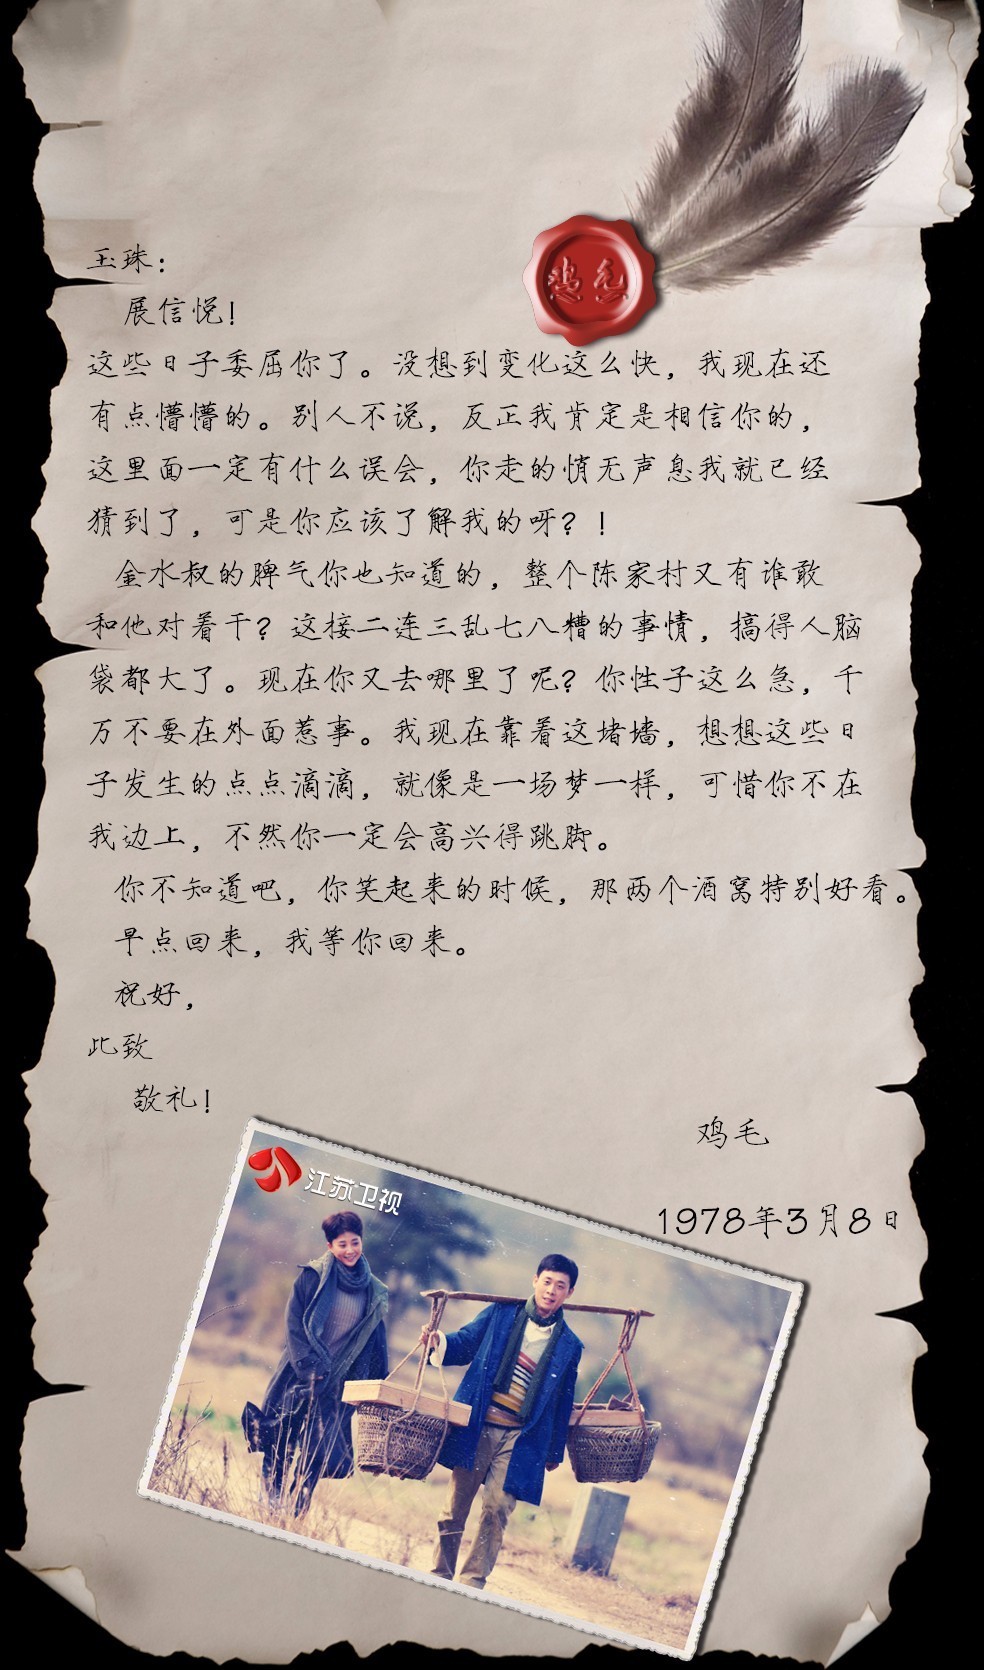 鸡毛
玉珠：
展信悦！
这些日子委屈你了。没想到变化这么快，我现在还
有点懵懵的。别人不说，反正我肯定是相信你的，
这里面一定有什么误会，你走的悄无声息我就已经
猜到了，可是你应该了解我的呀？！
金水叔的脾气你也知道的，整个陈家村又有谁敢
和他对着干？这接二连三乱七八糟的事情，搞得人脑
袋都大了。现在你又去哪里了呢？你性子这么急，千
万不要在外面惹事。我现在靠着这堵墙，想想这些日
子发生的点点滴滴，就像是一场梦一样，可惜你不在
我边上，不然你一定会高兴得跳脚。
你不知道吧，你笑起来的时候，那两个酒窝特别好看。
早点回来，我等你回来。
祝好，
此致
敬礼！
鸡毛
1978年3月8日
江苏卫视